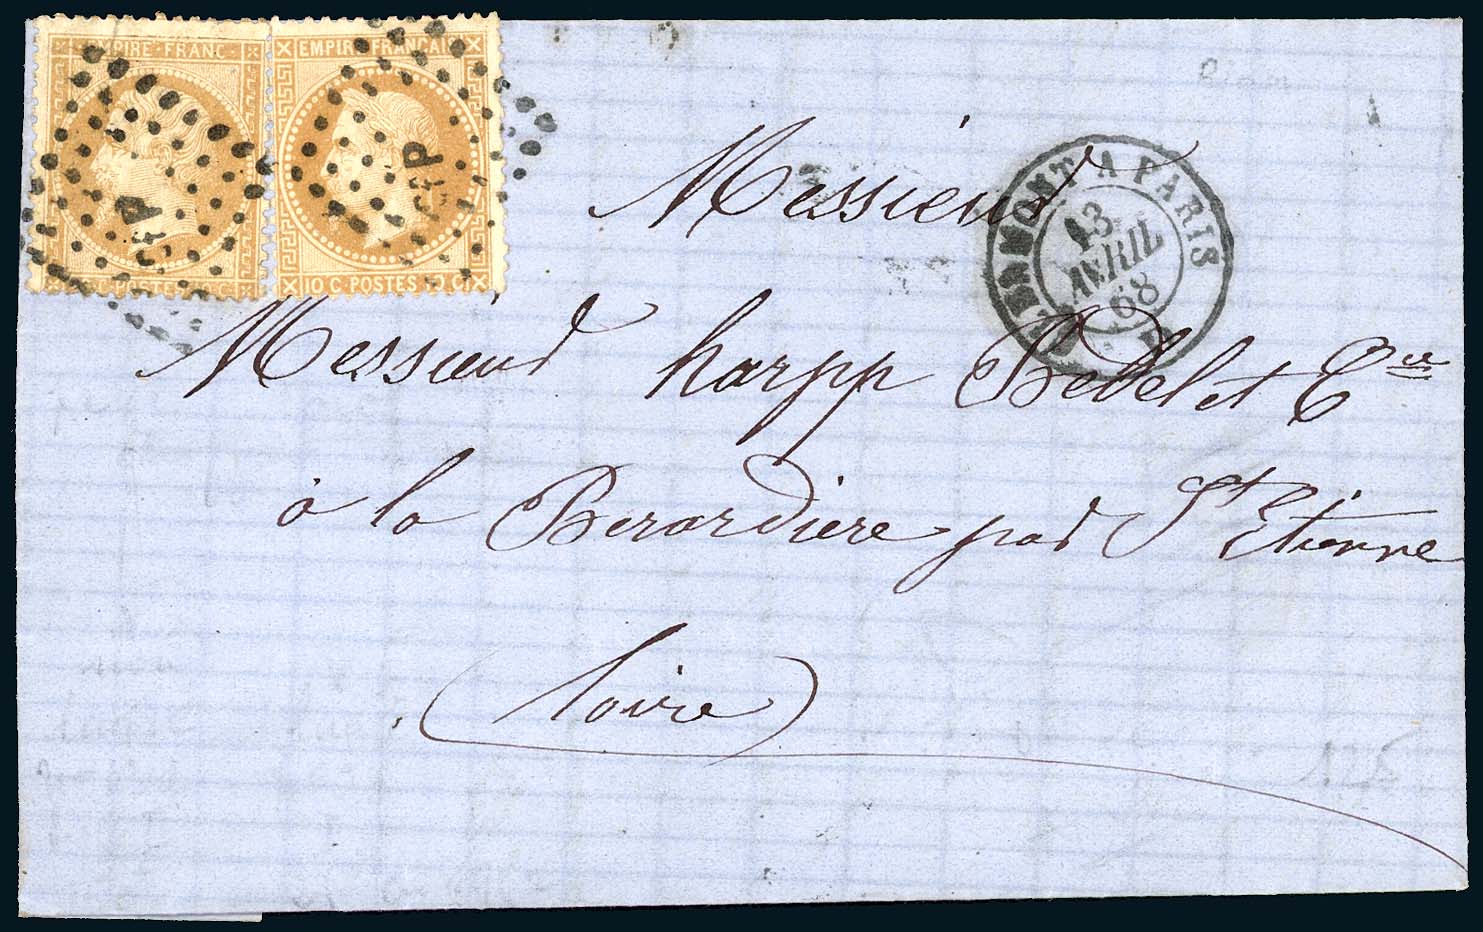 EMPIRE FRANC EMPIRE FRANÇAIS
C P C P
C POSTES 10 C POSTES 10 C
MONT A PARIS
13
AVRIL
68
Messieurs
Messieurs harpp Bedel et Cie
à la Berardiere par St Etienne
(Loire)